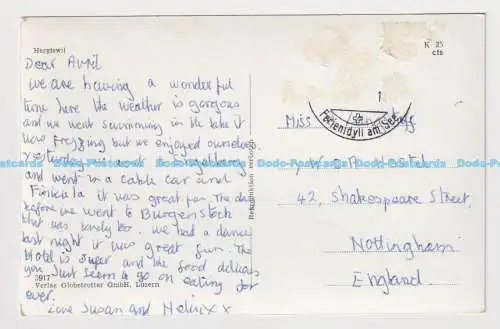 Hergiswil
K 25
cfs
Dear Avril
We are having a wonderful
time here the weather is gorgous
and we went swimming in the lake it
was freyzing but we enjoyed ourselves
yesterday we went
and went in a cable car and
it was great fun. The day
before we went to Burgenstock
that was lovely too. We had a dance
last night it was great fun. The
Hotel is super and the food delicous
you Just seem to go on eating for
ever.
Love Susan and xx
Ferienidyll am See
Miss
42, Shakespeare Street,
Nottingham
England.
Reproduktion verboten
3917
Verlag Globetrotter GmbH, Luzern
Dodo-Postcards